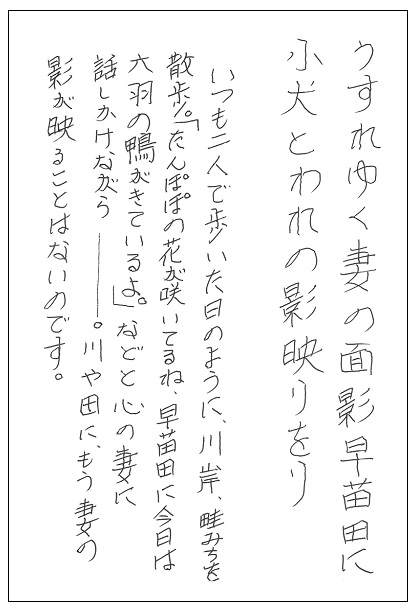 うすれゆく妻の面影早苗田に
小犬とわれの影映りをり
いつも二人で歩いた日のように、川岸、畦みちを
散歩。「たんぽぽの花が咲いてるね、早苗田に今日は
六羽の鴨がきているよ。」などと心の妻に
話しかけながら――。川や田に、もう妻の
影が映ることはないのです。